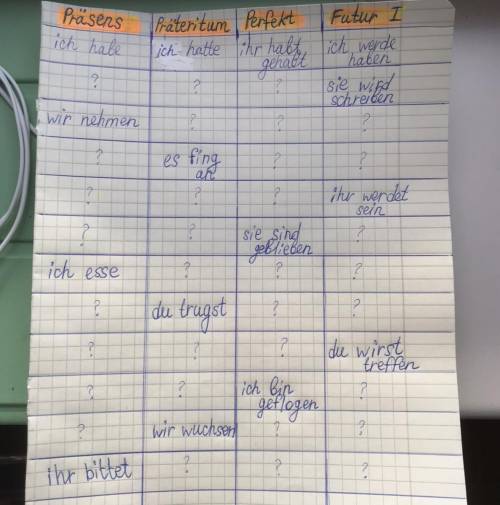 Präsens Präteritum Perfekt Futur I
ich habe ich hatte ihr habt gehabt ich werde haben
? ? ? sie wird schreiben
wir nehmen ? ? ?
? es fing an ? ?
? ? ? ihr werdet sein
? ? sie sind geblieben ?
ich esse ? ? ?
? du trugst ? ?
? ? ? du wirst treffen
? ? ich bin geflogen ?
? wir wuchsen ? ?
ihr bittet ? ? ?